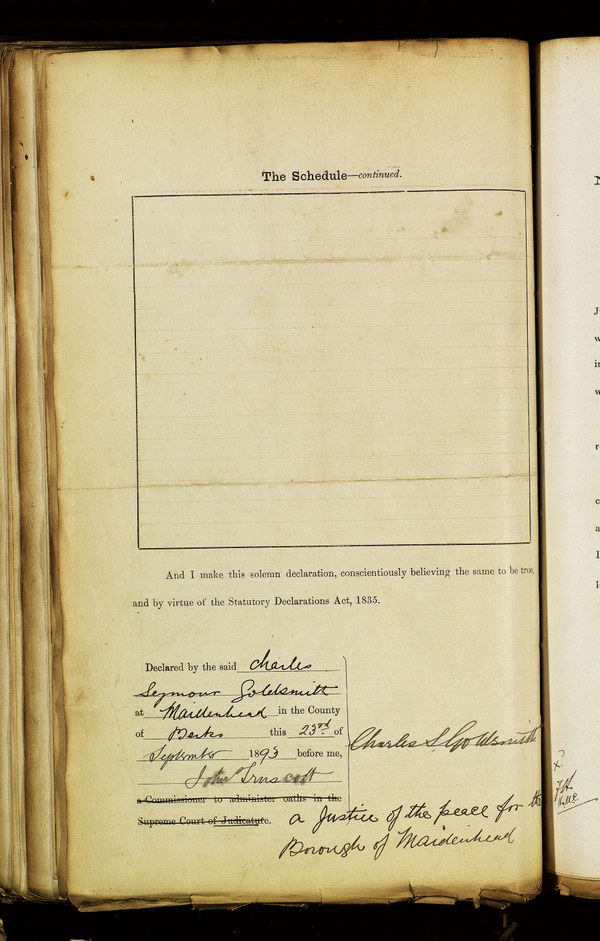 The Schedule—continued.
And I make this solemn declaration, conscientiously believing the same to be true,
and by virtue of the Statutory Declarations Act, 1835.
Declared by the said Charles
Seymour Goldsmith
at Maidenhead in the County
of Berks this 23rd of
September 1893 before me,
John Truscott
a Commissioner to administer oaths in the
Supreme Court of Judicature.
Charles S Goldsmith
a Justice of the peace for the
Borough of Maidenhead